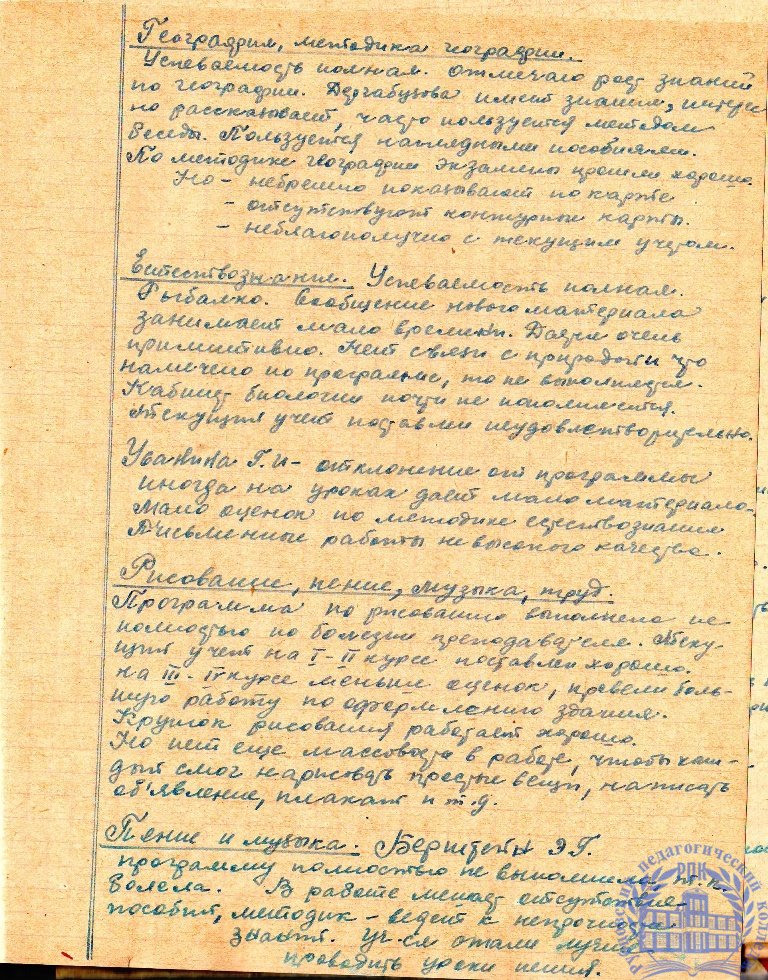 География, методика географии.
Успеваемость полная. Отмечаю рост знаний
по географии. имеет знания, интерес-
но рассказывает, часто пользуется методом
беседы. Пользуется наглядными пособиями.
По методике географии экзамены прошли хорошо.
Но - небрежно показывают по карте
- отсутствуют контурные карты.
- неблагополучно с текущим учетом.
Естествознание. Успеваемость полная.
Рыбалко. Сообщение нового материала
занимает мало времени. Даёт очень
примитивно. Нет связи с природой и что
намечено по программе, то не выполняется.
Кабинет биологии почти не пополняется.
Текущий учет поставлен неудовлетворительно.
Уванина Г.И - отклонение от программы
иногда на уроках дает мало материала.
Мало оценок по методике естествознания
Письменные работы невысокого качества.
Рисование, пение, музыка, труд.
Программа по рисованию выполнена не
полностью по болезни преподавателя. Теку-
щий учет на I-II курсе поставлен хорошо.
на III-IV курсе меньше оценок, провели боль-
шую работу по оформлению здания.
Кружок рисования работает хорошо.
Но нет еще массовости в работе, чтобы каж-
дый смог нарисовать простые вещи, написать
об'явление, плакат и т.д.
Пение и музыка. Берштейн Э.Г.
программу полностью не выполнила т.к.
болела. В работе мешает отсутствие
пособий, методик - ведет к непрочности
знаний. Уч-ся стали лучше
проводить уроки пения
педагогический
РПК